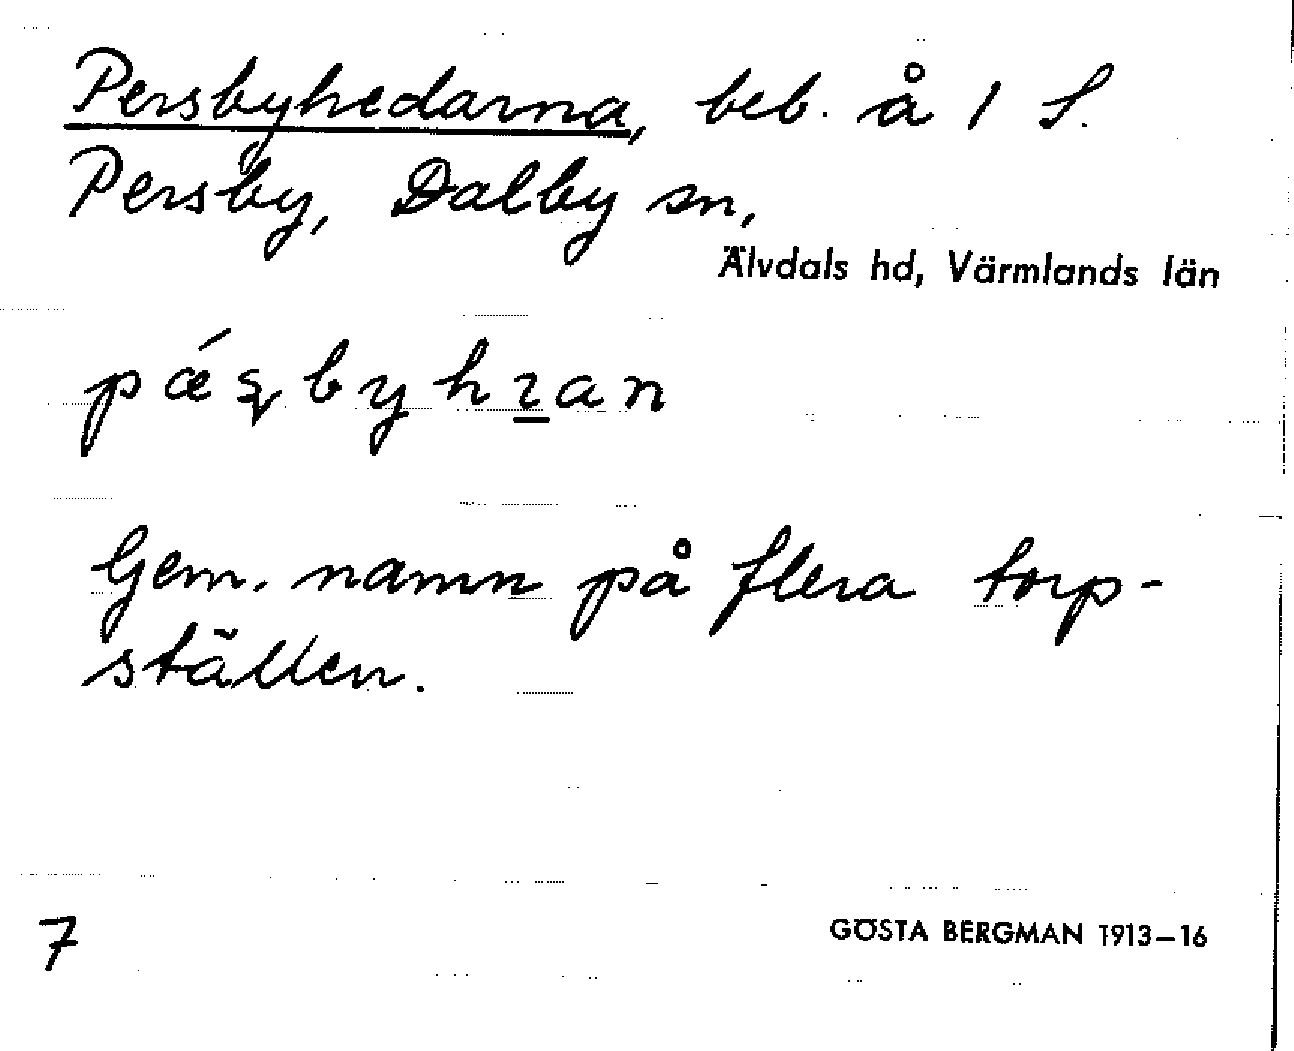 Persbyhedarna, beb. å 1 S.
Persby, Dalby sn,
Älvdals hd, Värmlands län
Gem. namn på flera torp-
ställen.
7
GÖSTA BERGMAN 1913–16